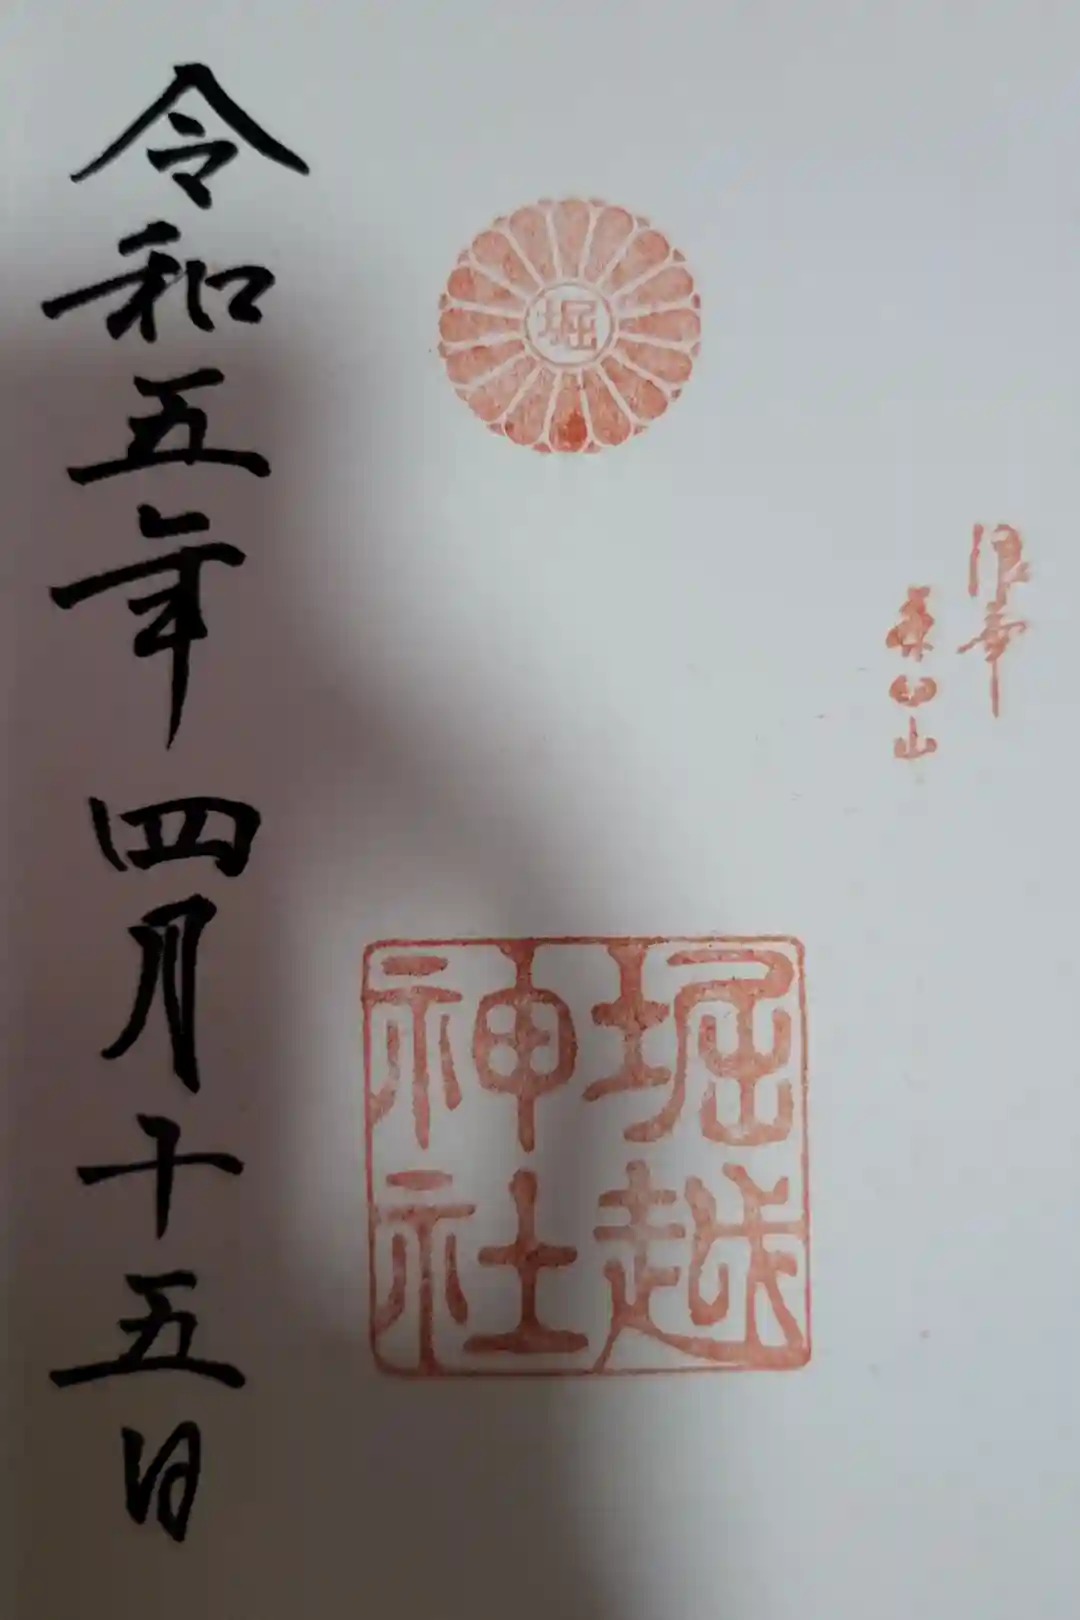 浪華
茶臼山
堀
堀越
神社
令和五年四月十五日